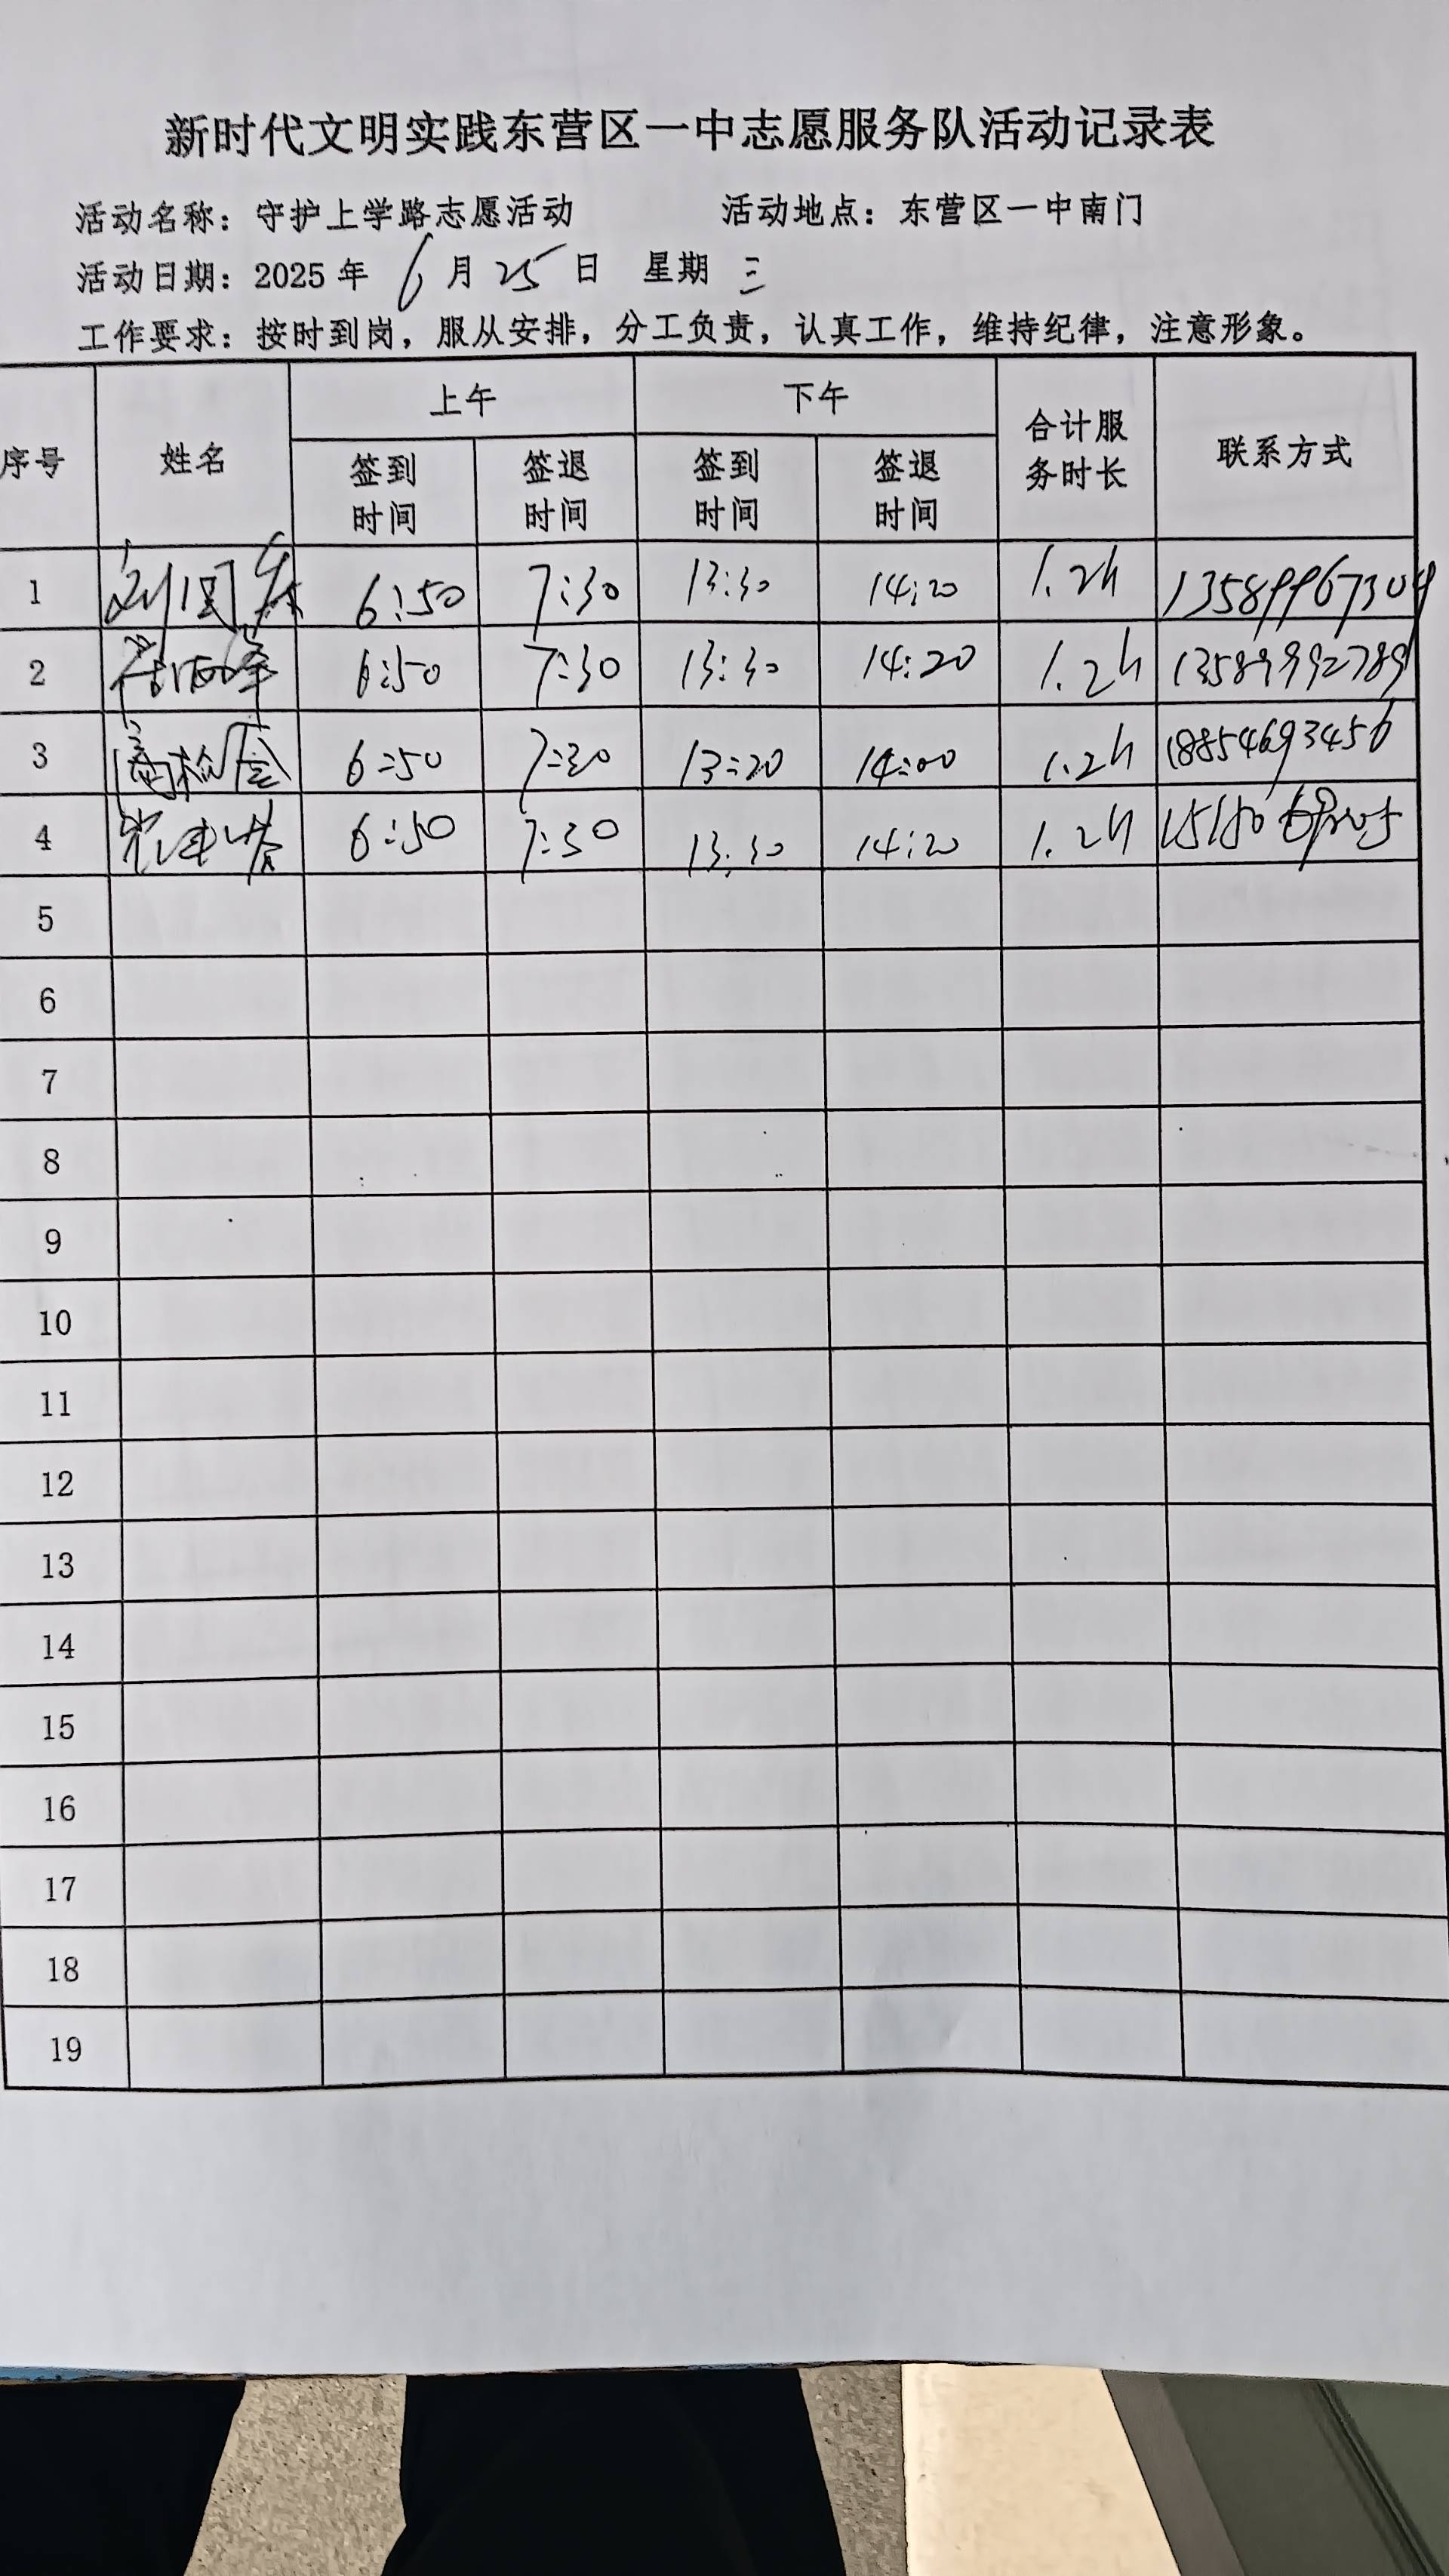 新时代文明实践东营区一中志愿服务队活动记录表
活动名称：守护上学路志愿活动 活动地点：东营区一中南门
活动日期：2025年 6月25日 星期三
工作要求：按时到岗，服从安排，分工负责，认真工作，维持纪律，注意形象。
序号 姓名 上午 下午 合计服务时长 联系方式
签到时间 签退时间 签到时间 签退时间
1 6:50 7:30 13:30 14:20 1.2h 13589967304
2 6:50 7:30 13:30 14:20 1.2h 13589992789
3 6:50 7:30 13:20 14:00 1.2h 18854693456
4 6:50 7:30 13:30 14:20 1.2h
5
6
7
8
9
10
11
12
13
14
15
16
17
18
19